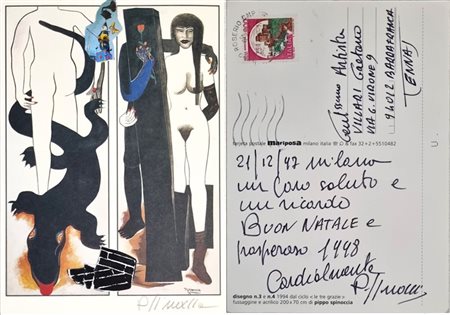 Gentilissimo Artista
VILLARI Gaetano
VIA G. VIRONE 9
94012 BARRAFRANCA
[ENNA]
cartolina postale mariposa milano italia ☎ & fax 32+2+5510482
21/12/97 milano
un caro saluto e
un ricordo
BUON NATALE e
prosperoso 1998
Cordialmente
disegno n.3 e n.4 1994 dal ciclo «le tre grazie»
fusaggine e acrilico 200 x 70 cm di pippo spinoccia